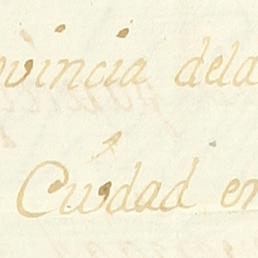 vincia dela
Ciudad en